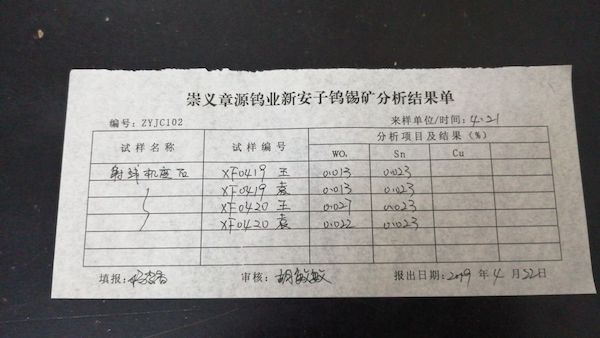 崇义章源钨业新安子钨锡矿分析结果单
编号：ZYJC102 来样单位/时间：4.21
试样名称 试样编号 分析项目及结果（%）
WO₃ Sn Cu
射线机废石 XF0419 王 0.013 0.023
XF0419 袁 0.013 0.023
XF0420 王 0.027 0.023
XF0420 袁 0.022 0.023
填报： 审核：胡敏敏 报出日期：2019 年 4 月 22日